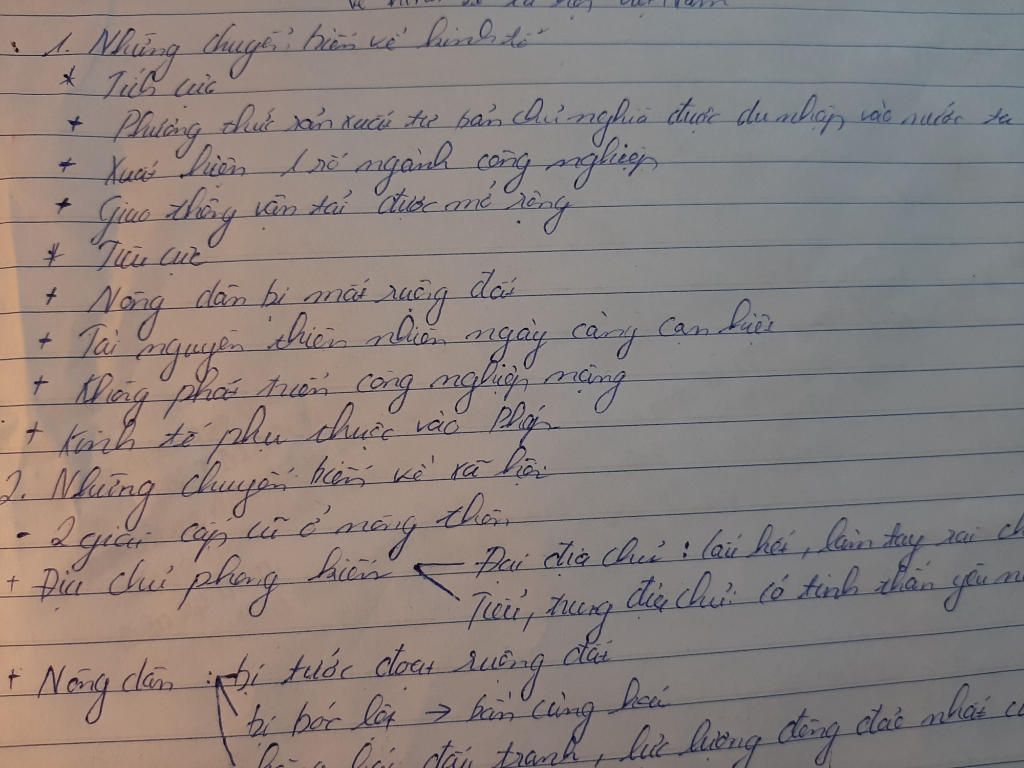 về kinh tế xã hội Việt Nam
1. Những chuyển biến về kinh tế
* Tích cực
+ Phương thức sản xuất tư bản chủ nghĩa được du nhập vào nước ta
+ Xuất hiện 1 số ngành công nghiệp
+ Giao thông vận tải được mở rộng
* Tiêu cực
+ Nông dân bị mất ruộng đất
+ Tài nguyên thiên nhiên ngày càng cạn kiệt
+ Không phát triển công nghiệp nặng
+ Kinh tế phụ thuộc vào Pháp
2. Những chuyển biến về xã hội
- 2 giai cấp cũ ở nông thôn
+ Địa chủ phong kiến Đại địa chủ : làm tay sai
Tiểu, trung địa chủ: có tinh thần yêu
+ Nông dân : bị tước đoạt ruộng đất
bị bóc lột → bần cùng hoá
đấu tranh, lực lượng đông đảo nhất